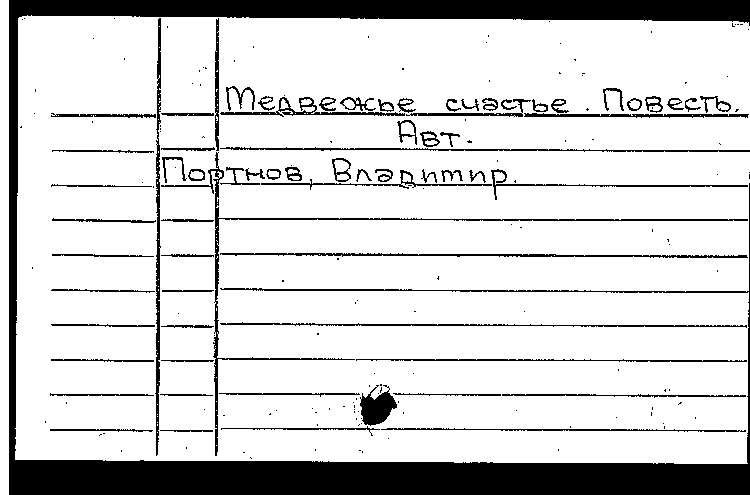 Медвежье счастье. Повесть.
Авт.
Портнов, Владимир.